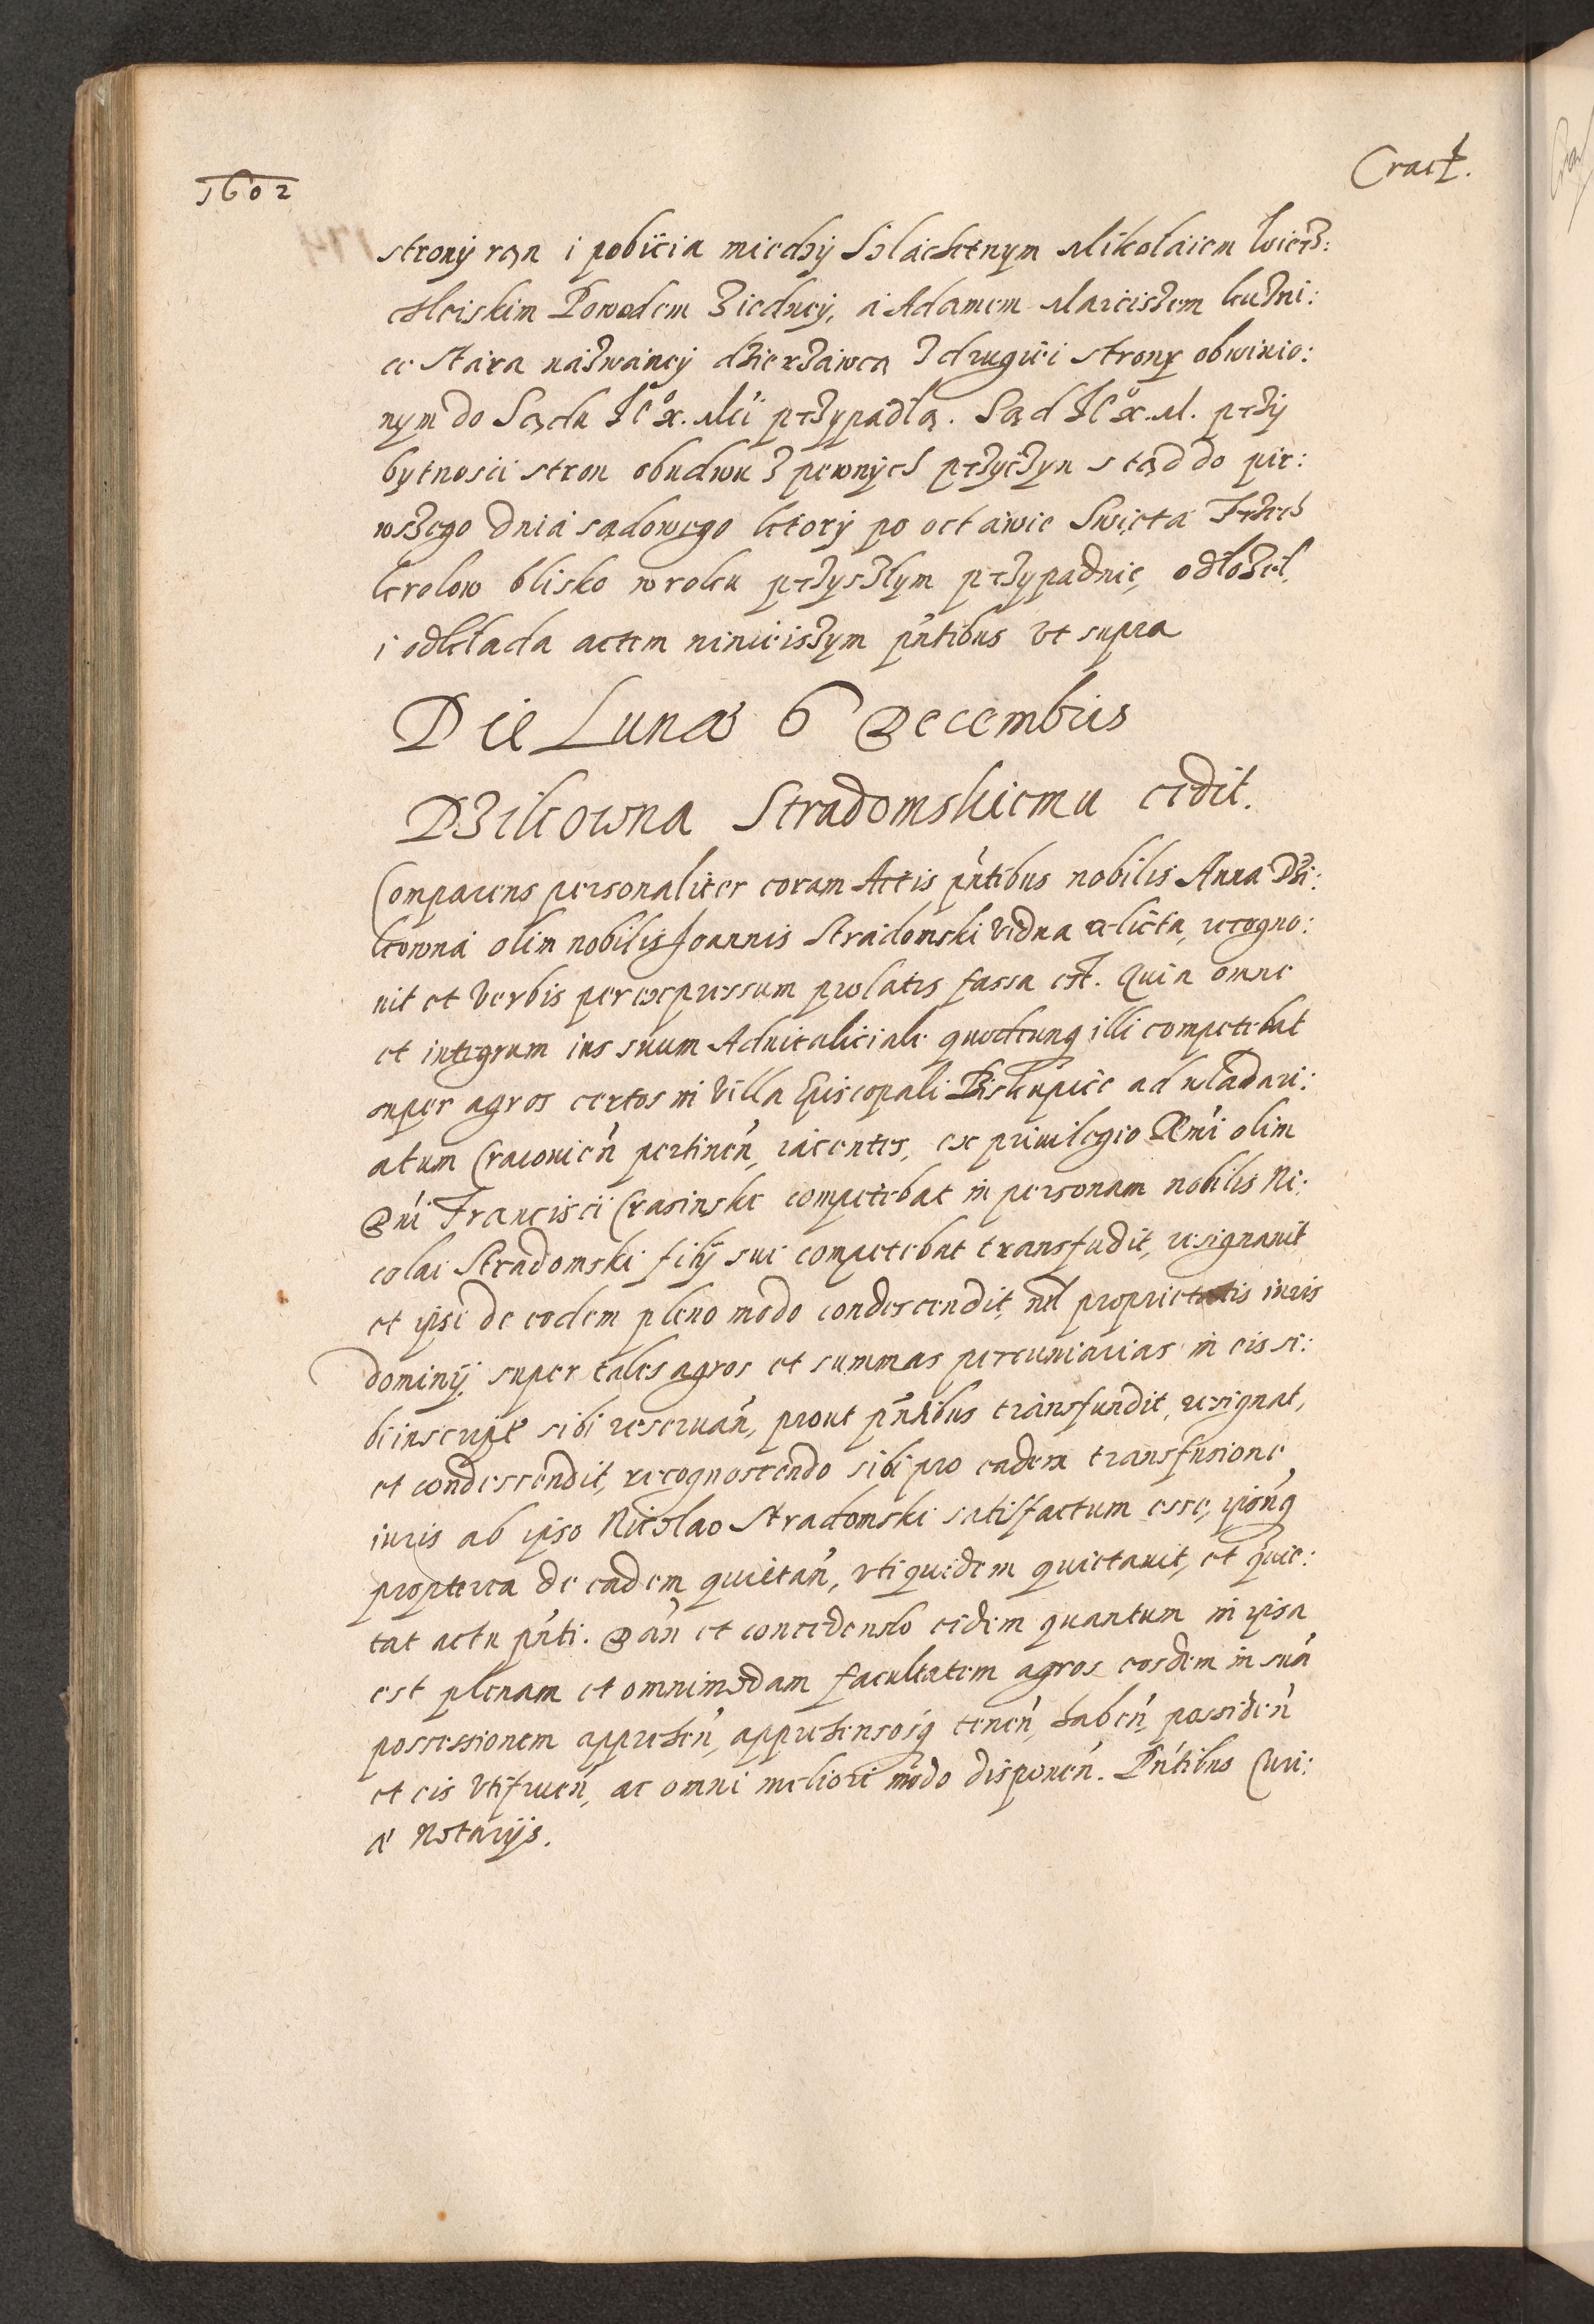 1602
Cract.
strony ran i pobicia miedzy Szlachetnym Mikolaiem Wierz:
chleiskim Powodem z iedney, a Adamem Marciszem kuzni:
ce Stara nazwaney dzierzawcą z drugiei strony obwinio:
nym do Sądu Je° x. Mci przypadłą. Sąd Je° x. M. przy
bytnosci stron obudwu z pewnych przyczyn stąd do pir:
wszego dnia sądowego ktory po octawie Swięta Trzech
krolow blisko w roku przyszłym przypadnie, odłożeł,
i odkłada actem ninieiszym pñtibus vt supra
Die Lunæ 6 Decembris
Dzikowna Stradomskiemu cedit.
Comparens personaliter coram Actis pñtibus nobilis Anna Dzi:
kowna olim nobilis Joannis Stradomski vidua relicta, recogno:
uit et verbis per expressum prolatis fassa est. Quia omne
et integrum ius suum Aduitaliciale quodcunq illi competebat
super agros certos in villa Episcopali Biskupice ad wladari:
atum Cracouień pertineń, iacentes, ex priuilegio Rmi olim
Dñi Francisci Crasinski competebat in personam nobilis Ni:
colai Stradomski filij sui competebat transfudit, resignauit
et ipsi de eodem pleno modo condescendit, nil proprietatis iuris
dominij super tales agros et summas pecuniarias in eis si:
bi inscript sibi reseruań, prout pñtibus transfundit, resignat,
et condescendit, recognoscendo sibi pro eadem transfusione
iuris ab ipso Nicolao Stradomski satisfactum esse, ipsunq
propterea de eadem quietań, vti quidem quietauit, et quie:
tat actu pñti. Dań et concedendo eidem quantum in ipsa
est plenam et omnimodam facultatem agros eosdem in suã
possessionem appreheń, apprehensosq teneń, habeń, possideń
et eis vtifrueń, ac omni meliori modo disponeń. Pñtibus Curi:
æ Notarijs.